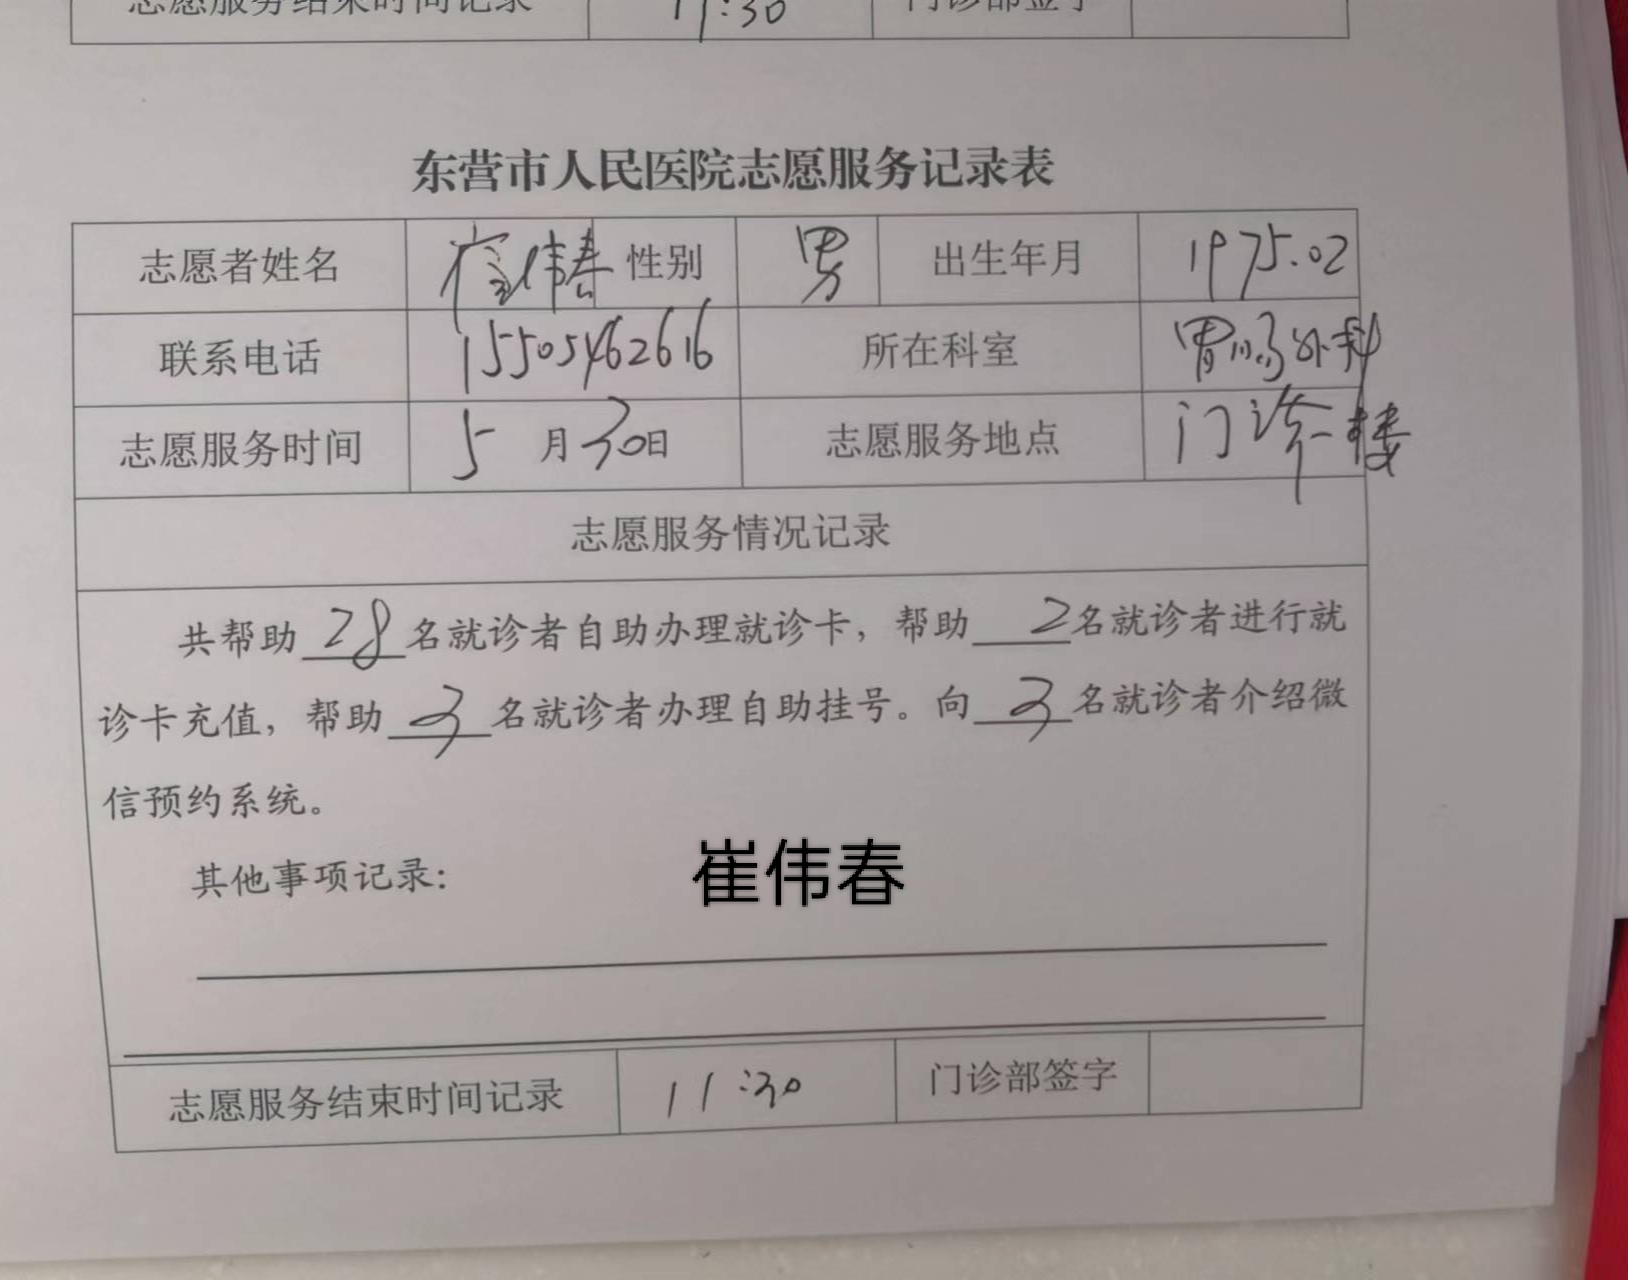 志愿服务结束时间记录 11:30 门诊部签字
东营市人民医院志愿服务记录表
志愿者姓名 崔伟春 性别 男 出生年月 1975.02
联系电话 15505462616 所在科室 胃肠外科
志愿服务时间 5月30日 志愿服务地点 门诊楼
志愿服务情况记录
共帮助 28 名就诊者自助办理就诊卡，帮助 2 名就诊者进行就
诊卡充值，帮助 3 名就诊者办理自助挂号。向 3 名就诊者介绍微
信预约系统。
其他事项记录：
崔伟春
志愿服务结束时间记录 11:30 门诊部签字